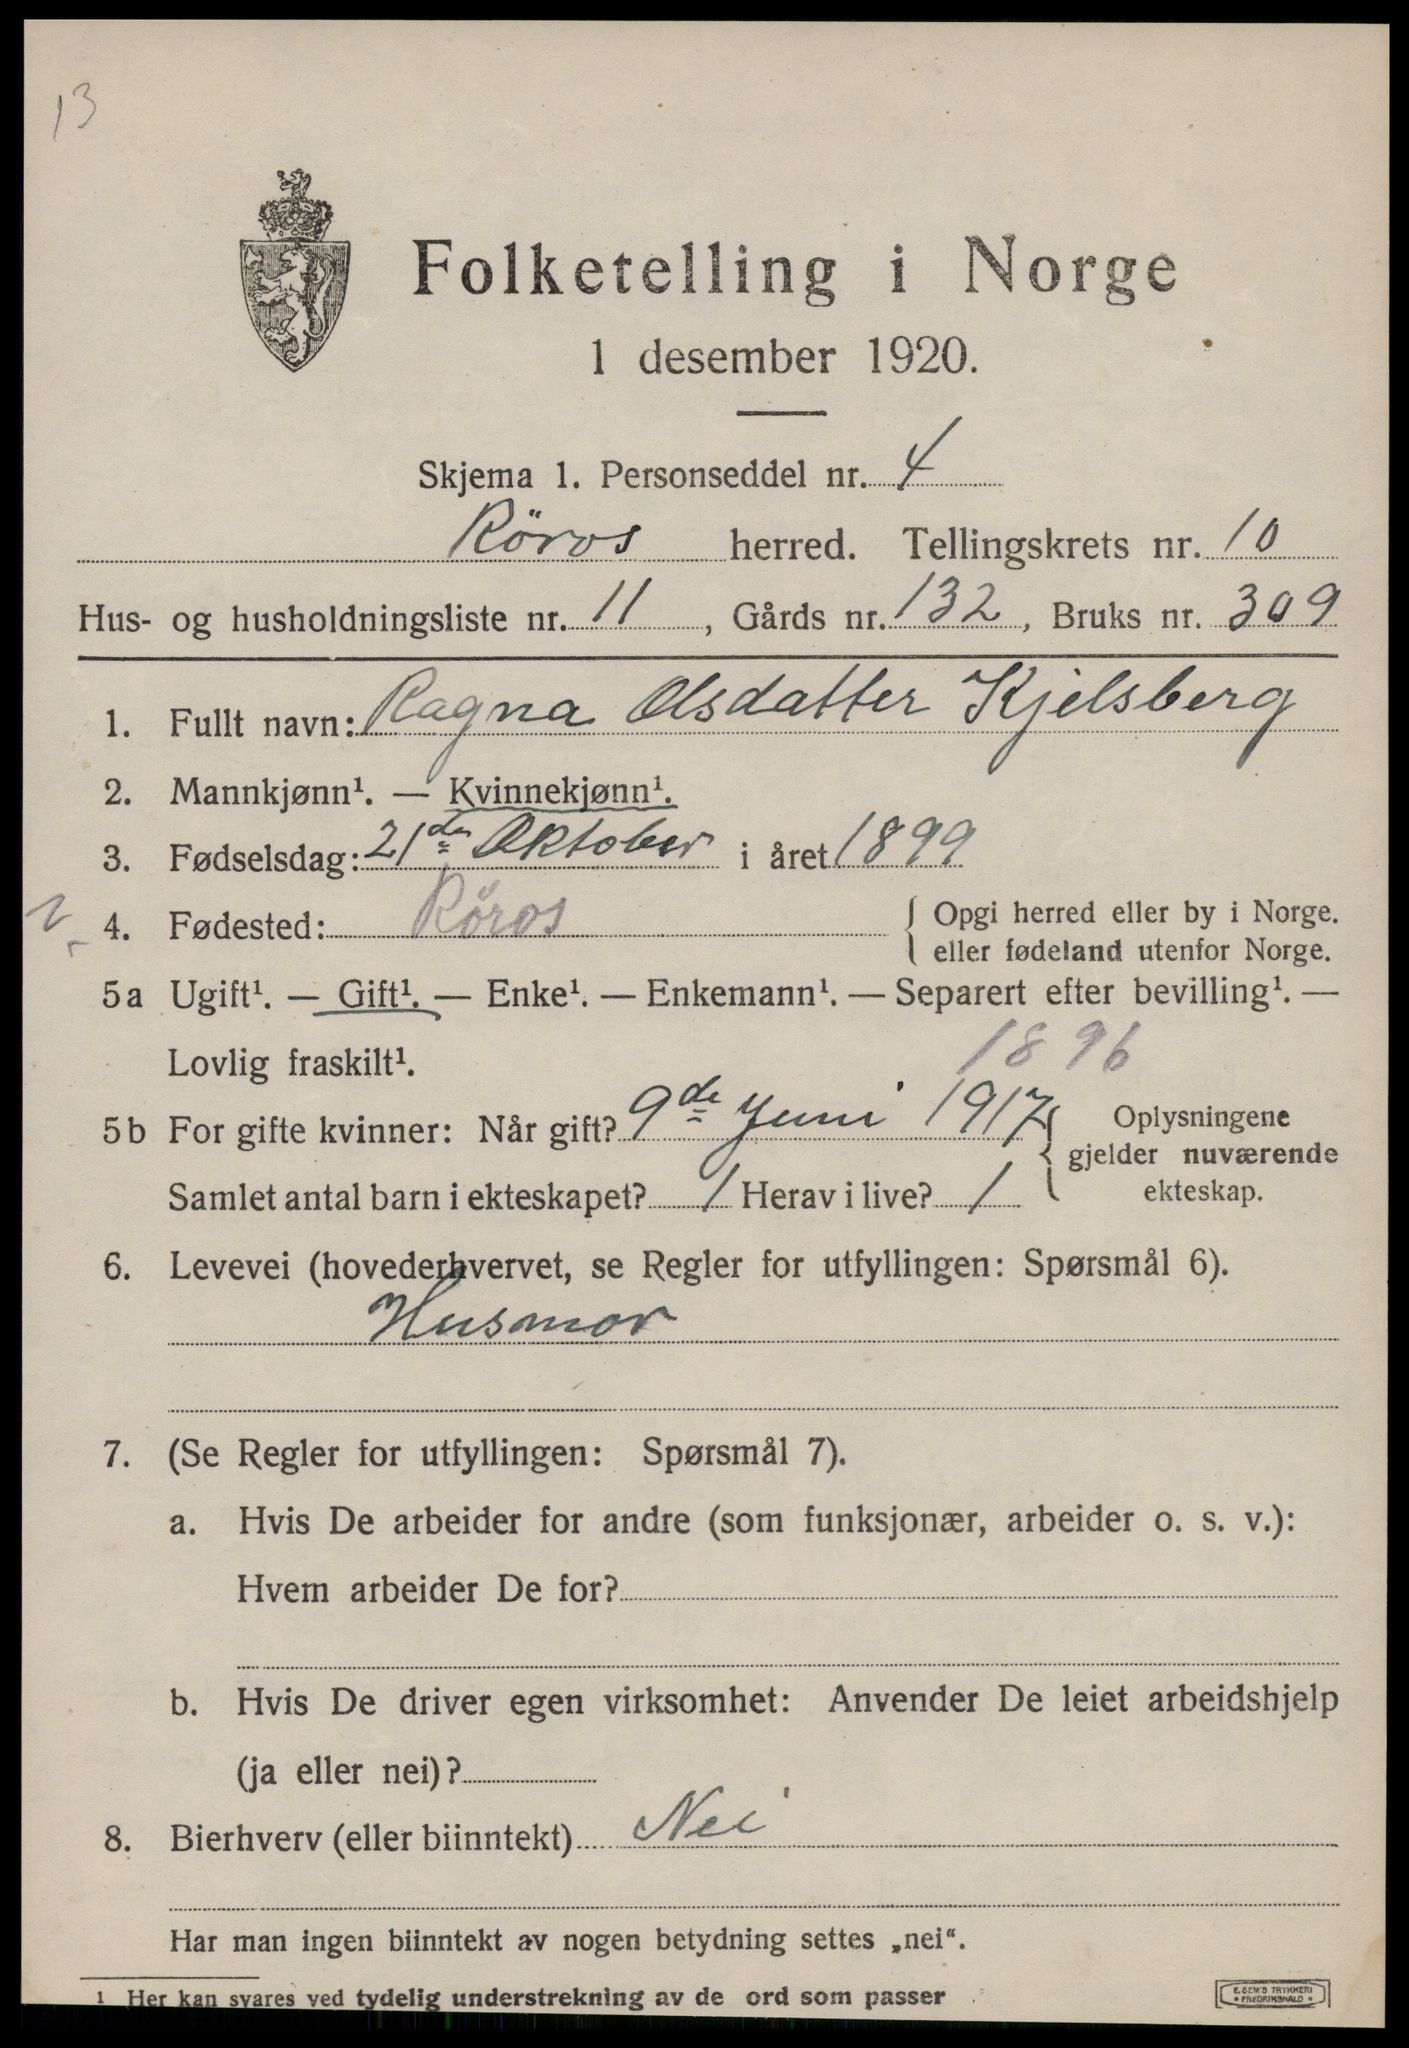 13
Folketelling i Norge
1 desember 1920.
Skjema 1. Personseddel nr. 4
Röros herred. Tellingskrets nr. 10
Hus- og husholdningsliste nr. 11, Gårds nr. 132, Bruks nr. 309
1. Fullt navn: Ragna Olsdatter Kjelsberg
2. Mannkjønn¹. — Kvinnekjønn¹.
3. Fødselsdag: 21de Oktober i året 1899
4. Fødested: Röros { Opgi herred eller by i Norge.
eller fødeland utenfor Norge.
5a Ugift¹. — Gift¹. — Enke¹. — Enkemann¹. — Separert efter bevilling¹. —
Lovlig fraskilt¹. 1896
5b For gifte kvinner: Når gift? 9de Juni 1917 { Oplysningene
gjelder nuværende
Samlet antal barn i ekteskapet? 1 Herav i live? 1 ekteskap.
6. Levevei (hovederhvervet, se Regler for utfyllingen: Spørsmål 6).
Husmor
7. (Se Regler for utfyllingen: Spørsmål 7).
a. Hvis De arbeider for andre (som funksjonær, arbeider o. s. v.):
Hvem arbeider De for?
b. Hvis De driver egen virksomhet: Anvender De leiet arbeidshjelp
(ja eller nei)?
8. Bierhverv (eller biinntekt) Nei
Har man ingen biinntekt av nogen betydning settes „nei“.
¹ Her kan svares ved tydelig understrekning av de ord som passer
E. SEM'S TRYKKERI
• FREDRIKSHALD •